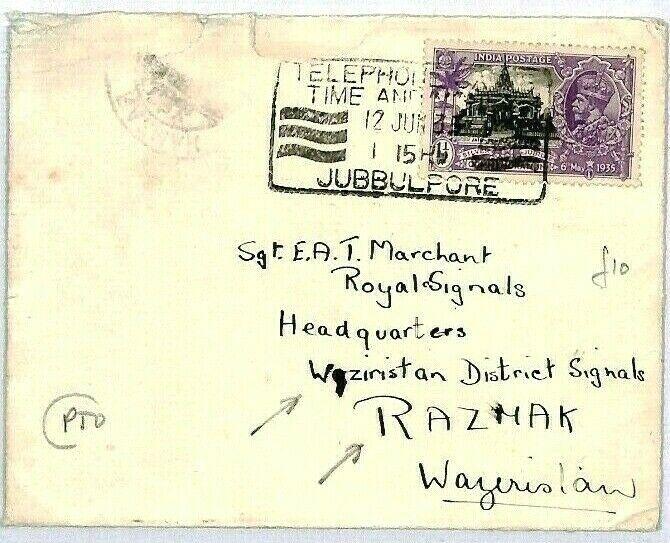 TELEPHO
TIME AND
12 JUN 3
1 15
JUBBULPORE
INDIA POSTAGE
6 May 1935
Sgt. E.A.T. Marchant
Royal Signals
Headquarters
Waziristan District Signals
RAZMAK
Wazeristan
£10
PTO